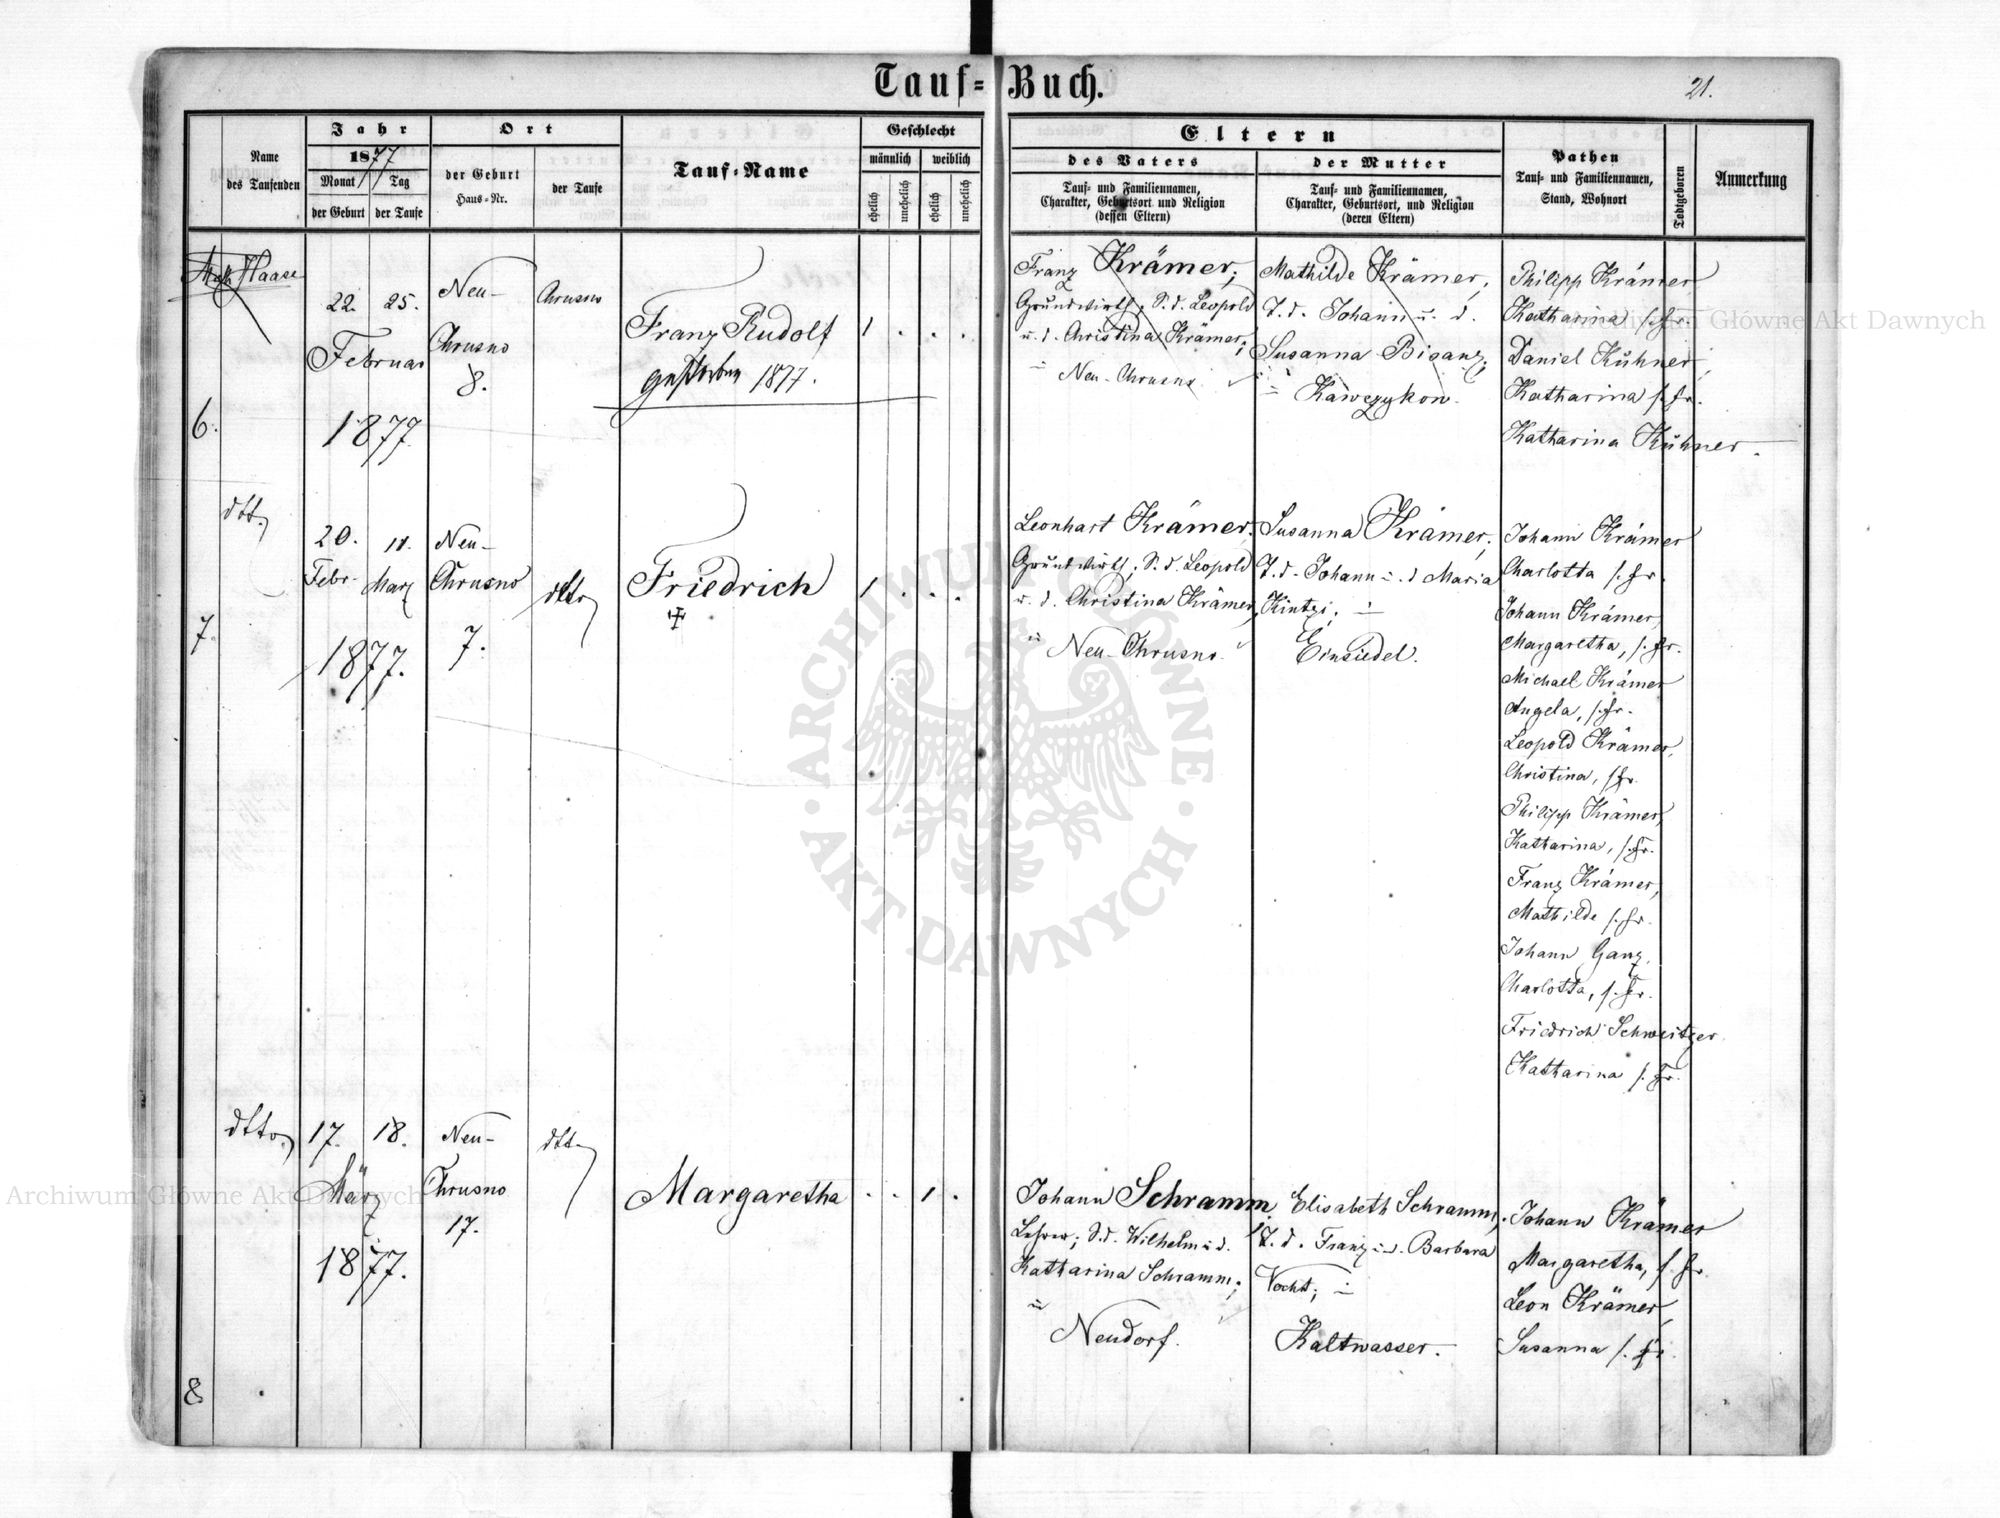 Tauf-Buch.
21.
Name
des Taufenden
Jahr
1877
Monat Tag
der Geburt der Taufe
Ort
der Geburt
Haus-Nr.
der Taufe
Tauf-Name
Geschlecht
männlich weiblich
ehelich unehelich ehelich unehelich
Eltern
des Vaters
Tauf- und Familiennamen,
Charakter, Geburtsort und Religion
(dessen Eltern)
der Mutter
Tauf- und Familiennamen,
Charakter, Geburtsort, und Religion
(deren Eltern)
Pathen
Tauf- und Familiennamen,
Stand, Wohnort
Todtgeboren
Anmerkung
6.
Haase
22. 25.
Februar
1877
Neu-
Chrusno
8.
Chrusno
Franz Rudolf
gestorben 1877.
1 . . .
Franz Krämer;
Grundwirth; S. d. Leopold
u. d. Christina Krämer;
Neu-Chrusno
Mathilde Krämer;
T. d. Johann u. d.
Susanna Bisanz;
Kawczykow.
Philipp Krämer
Katharina s. fr.
Daniel Kühner
Katharina s. fr.
Katharina Kühner.
7.
dtto
20. 11.
Febr. März
1877.
Neu-
Chrusno
7.
dtto
Friedrich
1 . . .
Leonhart Krämer;
Grundwirth; S. d. Leopold
u. d. Christina Krämer,
Neu-Chrusno.
Susanna Krämer;
T. d. Johann u. d. Maria
Kintzi;
Einsiedel.
Johann Krämer
Charlotta s. fr.
Johann Krämer,
Margaretha, s. fr.
Michael Krämer
Angela, s. fr.
Leopold Krämer,
Christina, s. fr.
Philipp Krämer,
Katharina, s. fr.
Franz Krämer,
Mathilde s. fr.
Johann Ganz,
Charlotta, s. fr.
Friedrich Schweitzer
Katharina s. fr.
8
dtto
17. 18.
März
1877.
Neu-
Chrusno
17.
dtto
Margaretha
. . 1 .
Johann Schramm
Lehrer; S. d. Wilhelm u. d.
Katharina Schramm;
Neudorf.
Elisabeth Schramm;
T. d. Franz u. d. Barbara
Vocht;
Kaltwasser.
Johann Krämer
Margaretha, s. fr.
Leon Krämer,
Susanna s. fr.
ARCHIWUM GŁÓWNE
· AKT DAWNYCH ·
Archiwum Główne Akt Dawnych
Archiwum Główne Akt Dawnych